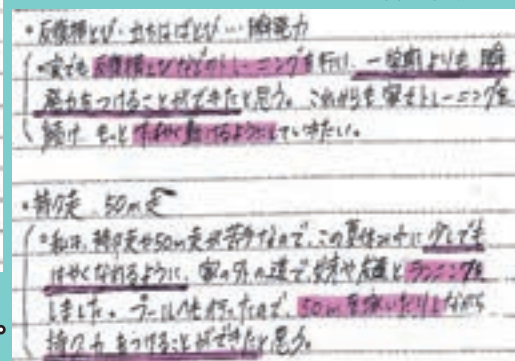 ・反復横とび・立ちはばとび…瞬発力
・家でも反復横とびなどのトレーニングを行い、一学期よりも瞬
発力をつけることができたと思う。これからも家でトレーニングを
続け、もっとすばやく動けるようにしていきたい。
・持久走、50m走
・私は、持久走や50m走が苦手なので、この夏休み中に少しでも
はやくなれるように、家の外の道で と ランニングを
しました。プールへも行ったので、50mを泳いだりしながら
持久力をつけることができたと思う。